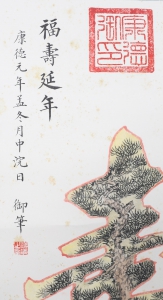 康德御印
福壽延年
康德元年孟冬月中浣日
御筆